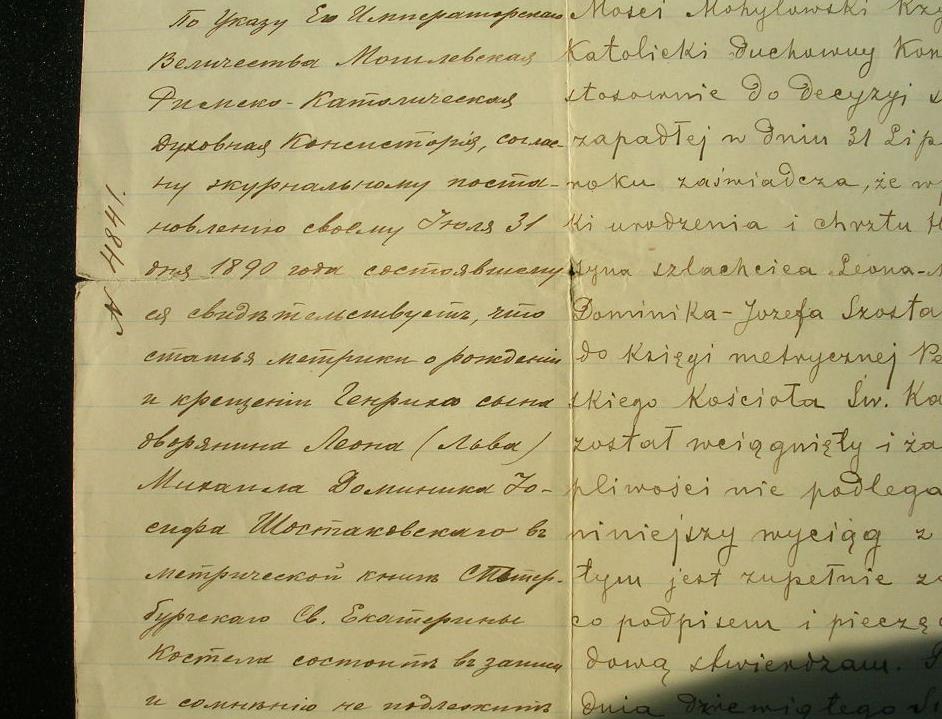 По Указу Его Императорскаго
Величества Могилевская
Римско-Католическая
Духовная Консисторія, соглас-
ну журнальному поста-
новленію своему Іюля 31
дня 1890 года состоявшему
ся свидѣтельствуетъ, что
статья метрики о рожденіи
и крещеніи Генриха сына
дворянина Леона (Льва)
Михаила Доминика Іо-
сифа Шостаковскаго въ
метрической книгѣ С Петер-
бургскаго Св. Екатерины
Костела состоитъ въ записи
и сомнѣнію не подлежитъ
N 4841.
Mości Mohylowski Rzy
Katolicki Duchowny Kon
stosownie do decyzyi s
zapadłej w dniu 31 Lip
roku zaświadcza, że w
ki urodzenia i chrztu H
syna szlachcica Leona-M
Dominika-Jozefa Szosta
do Księgi metrycznej Pe
skiego Kościoła Św. Ka
został wciągnięty i ża
pliwości nie podlega
niniejszy wyciąg z
tym jest zupełnie z
co podpisem i pieczę
dową stwierdzam.
dnia dziewiątego